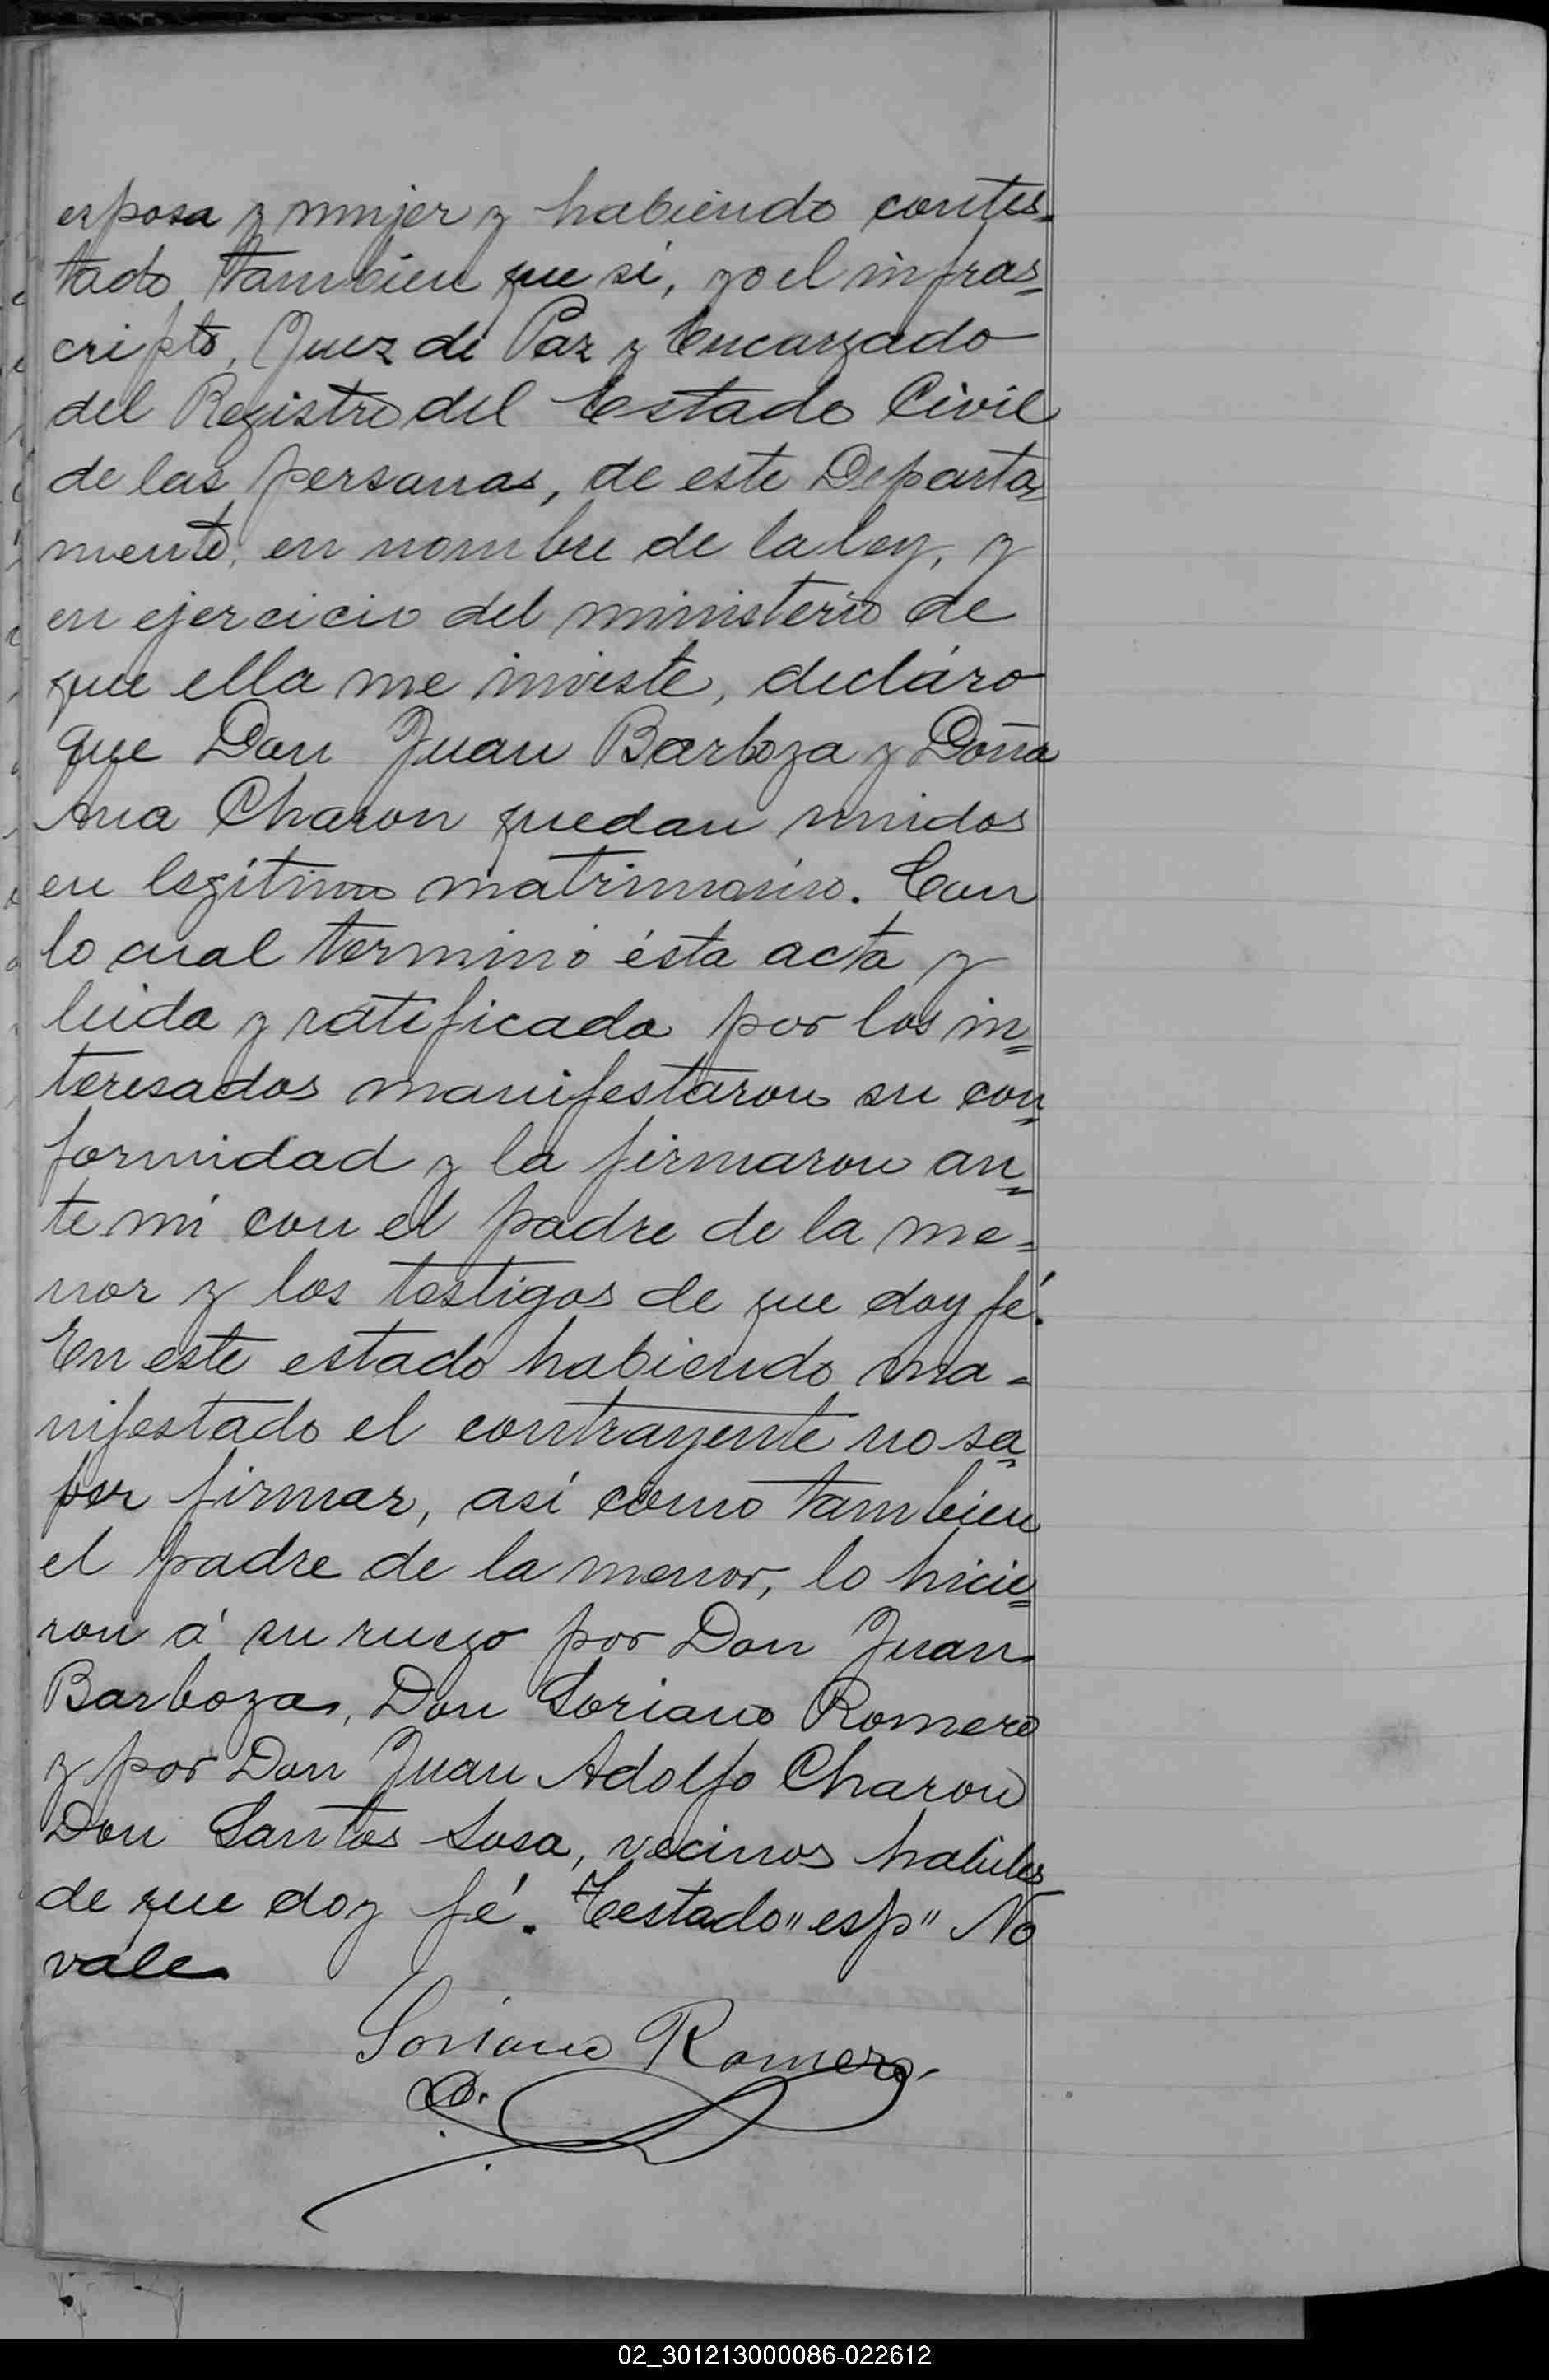 esposa y mujer y habiendo contes-
tado tambien que si, yo el infras=
cripto, Juez de Paz y Encargado
del Registro del Estado Civil
de las personas, de este Departa=
mento, en nombre de la ley, y
en ejercicio del ministerio de
que ella me inviste, decláro
que Don Juan Barboza y Doña
Ana Charon quedan unidos
en legítimo matrimonio. Con
lo cual terminó ésta acta y
leida y ratificada por los in=
teresados manifestaron su con=
formidad y la firmaron an=
te mí con el padre de la me=
nor y los testigos de que doy fé.
En este estado habiendo ma=
nifestado el contrayente no sa=
ber firmar, así como tambien
el padre de la menor, lo hicie=
ron á su ruego por Don Juan
Barboza, Don Soriano Romero
y por Don Juan Adolfo Charon
Don Santos Sosa, vecinos habiles
de que doy fé. Testado "esp" No
vale
Soriano Romero
02_301213000086-022612